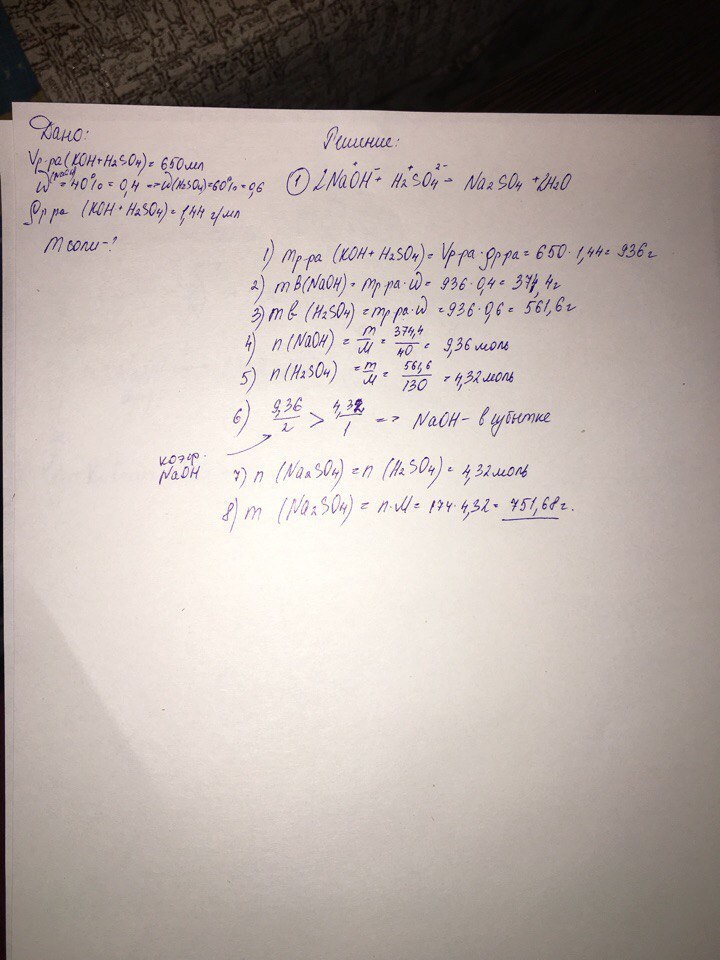 Дано:
Решение:
Vр-ра (KOH + H2SO4) = 650 мл
W (NaOH) = 40% = 0,4 => W(H2SO4) = 60% = 0,6
ρр-ра (KOH + H2SO4) = 1,44 г/мл
m соли - ?
① 2Na⁺OH⁻ + H2⁺SO4²⁻ = Na2SO4 + 2H2O
1) mр-ра (KOH + H2SO4) = Vр-ра · ρр-ра = 650 · 1,44 = 936 г
2) m в (NaOH) = mр-ра · W = 936 · 0,4 = 374,4 г
3) m в (H2SO4) = mр-ра · W = 936 · 0,6 = 561,6 г
4) n (NaOH) = m/M = 374,4/40 = 9,36 моль
5) n (H2SO4) = m/M = 561,6/130 = 4,32 моль
6) 9,36/2 > 4,32/1 => NaOH - в избытке
коэф. NaOH
7) n (Na2SO4) = n (H2SO4) = 4,32 моль
8) m (Na2SO4) = n · M = 174 · 4,32 = 751,68 г.